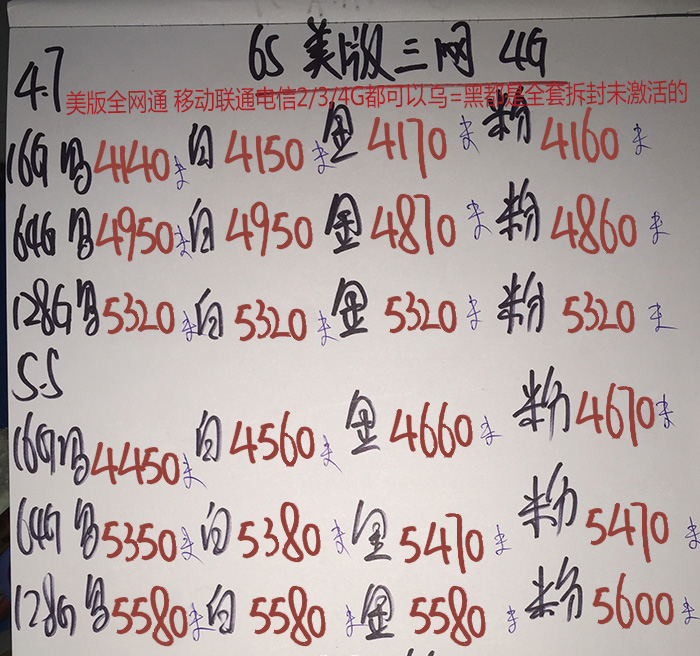 6S 美版三网 4G
4.7
美版全网通 移动联通电信2/3/4G都可以乌=黑都是全套拆封未激活的
16G 乌 4140未 白 4150未 金 4170未 粉 4160未
64G 乌 4950未 白 4950 金 4870未 粉 4860未
128G 乌 5320未 白 5320未 金 5320未 粉 5320未
5.5
16G 乌 4450未 白 4560未 金 4660未 粉 4670未
64G 乌 5350未 白 5380未 金 5470未 粉 5470未
128G 乌 5580未 白 5580未 金 5580未 粉 5600未